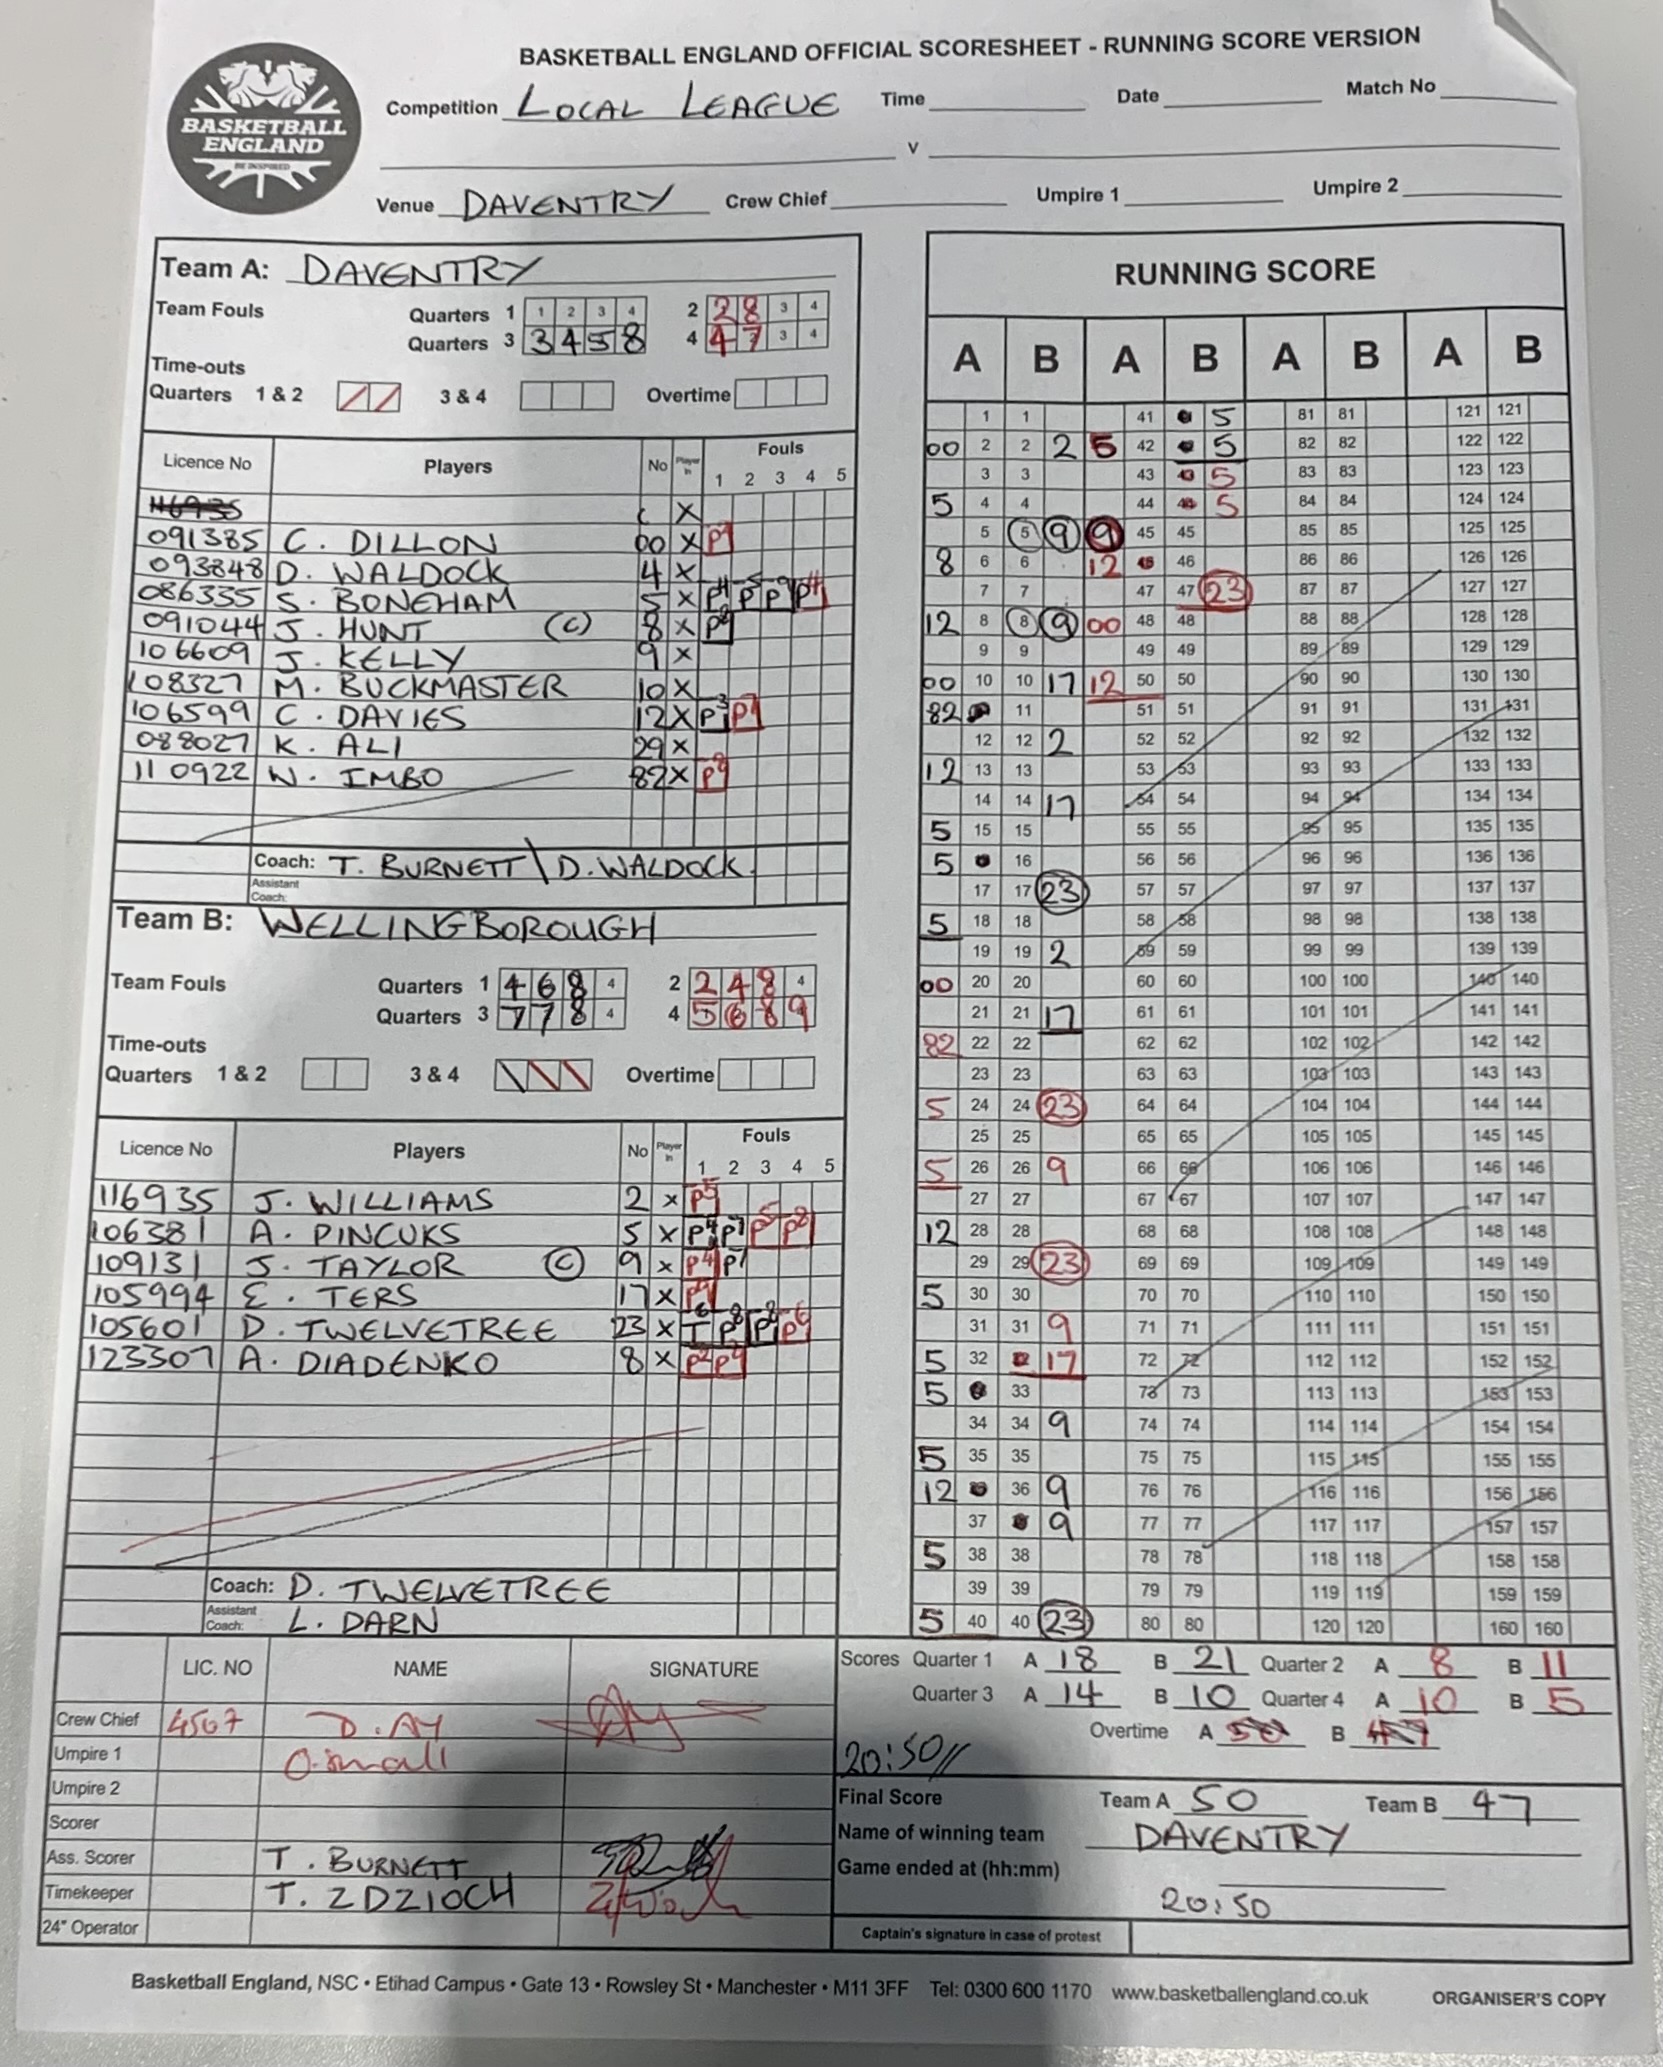 BASKETBALL ENGLAND OFFICIAL SCORESHEET - RUNNING SCORE VERSION
BASKETBALL
ENGLAND
BE INSPIRED
Competition LOCAL LEAGUE Time Date Match No
V
Venue DAVENTRY Crew Chief Umpire 1 Umpire 2
Team A: DAVENTRY
Team Fouls Quarters 1 1 2 3 4 2 2 8 3 4
Quarters 3 3 4 5 8 4 4 7 3 4
Time-outs
Quarters 1 & 2 3 & 4 Overtime
Licence No Players No Player In Fouls
1 2 3 4 5
X
091385 C. DILLON 00 X
093848 D. WALDOCK 4 X
086335 S. BONEHAM 5 X
091044 J. HUNT (C) 8 X
106609 J. KELLY 9 X
108327 M. BUCKMASTER 10 X
106599 C. DAVIES 12 X
088027 K. ALI 29 X
110922 W. IMBO 82 X
Coach: T. BURNETT \ D. WALDOCK
Assistant Coach:
Team B: WELLINGBOROUGH
Team Fouls Quarters 1 4 6 8 4 2 2 4 8 4
Quarters 3 7 7 8 4 4 5 6 8 9
Time-outs
Quarters 1 & 2 3 & 4 Overtime
Licence No Players No Player In Fouls
1 2 3 4 5
116935 J. WILLIAMS 2 X
106381 A. PINCUKS 5 X
109131 J. TAYLOR (C) 9 X
105994 E. TERS 17 X
105601 D. TWELVETREE 23 X
123307 A. DIADENKO 8 X
Coach: D. TWELVETREE
Assistant Coach: L. DARN
LIC. NO NAME SIGNATURE
Crew Chief 4567 D. AY
Umpire 1 O. Small
Umpire 2
Scorer
Ass. Scorer T. BURNETT
Timekeeper T. ZDZIOCH
24" Operator
RUNNING SCORE
A B A B A B A B
1 1 41 5 81 81 121 121
00 2 2 2 5 42 5 82 82 122 122
3 3 43 5 83 83 123 123
5 4 4 44 5 84 84 124 124
5 5 9 9 45 45 85 85 125 125
8 6 6 12 46 86 86 126 126
7 7 47 47 23 87 87 127 127
12 8 8 9 00 48 48 88 88 128 128
9 9 49 49 89 89 129 129
00 10 10 17 12 50 50 90 90 130 130
82 11 51 51 91 91 131 131
12 12 2 52 52 92 92 132 132
12 13 13 53 53 93 93 133 133
14 14 17 54 54 94 94 134 134
5 15 15 55 55 95 95 135 135
5 16 56 56 96 96 136 136
17 17 23 57 57 97 97 137 137
5 18 18 58 58 98 98 138 138
19 19 2 59 59 99 99 139 139
00 20 20 60 60 100 100 140 140
21 21 17 61 61 101 101 141 141
82 22 22 62 62 102 102 142 142
23 23 63 63 103 103 143 143
5 24 24 23 64 64 104 104 144 144
25 25 65 65 105 105 145 145
5 26 26 9 66 66 106 106 146 146
27 27 67 67 107 107 147 147
12 28 28 68 68 108 108 148 148
29 29 23 69 69 109 109 149 149
5 30 30 70 70 110 110 150 150
31 31 9 71 71 111 111 151 151
5 32 17 72 72 112 112 152 152
5 33 73 73 113 113 153 153
34 34 9 74 74 114 114 154 154
5 35 35 75 75 115 115 155 155
12 36 9 76 76 116 116 156 156
37 9 77 77 117 117 157 157
5 38 38 78 78 118 118 158 158
39 39 79 79 119 119 159 159
5 40 40 23 80 80 120 120 160 160
Scores Quarter 1 A 18 B 21 Quarter 2 A 8 B 11
Quarter 3 A 14 B 10 Quarter 4 A 10 B 5
Overtime A B
20:50//
Final Score Team A 50 Team B 47
Name of winning team DAVENTRY
Game ended at (hh:mm)
20:50
Captain's signature in case of protest
Basketball England, NSC • Etihad Campus • Gate 13 • Rowsley St • Manchester • M11 3FF Tel: 0300 600 1170 www.basketballengland.co.uk ORGANISER'S COPY